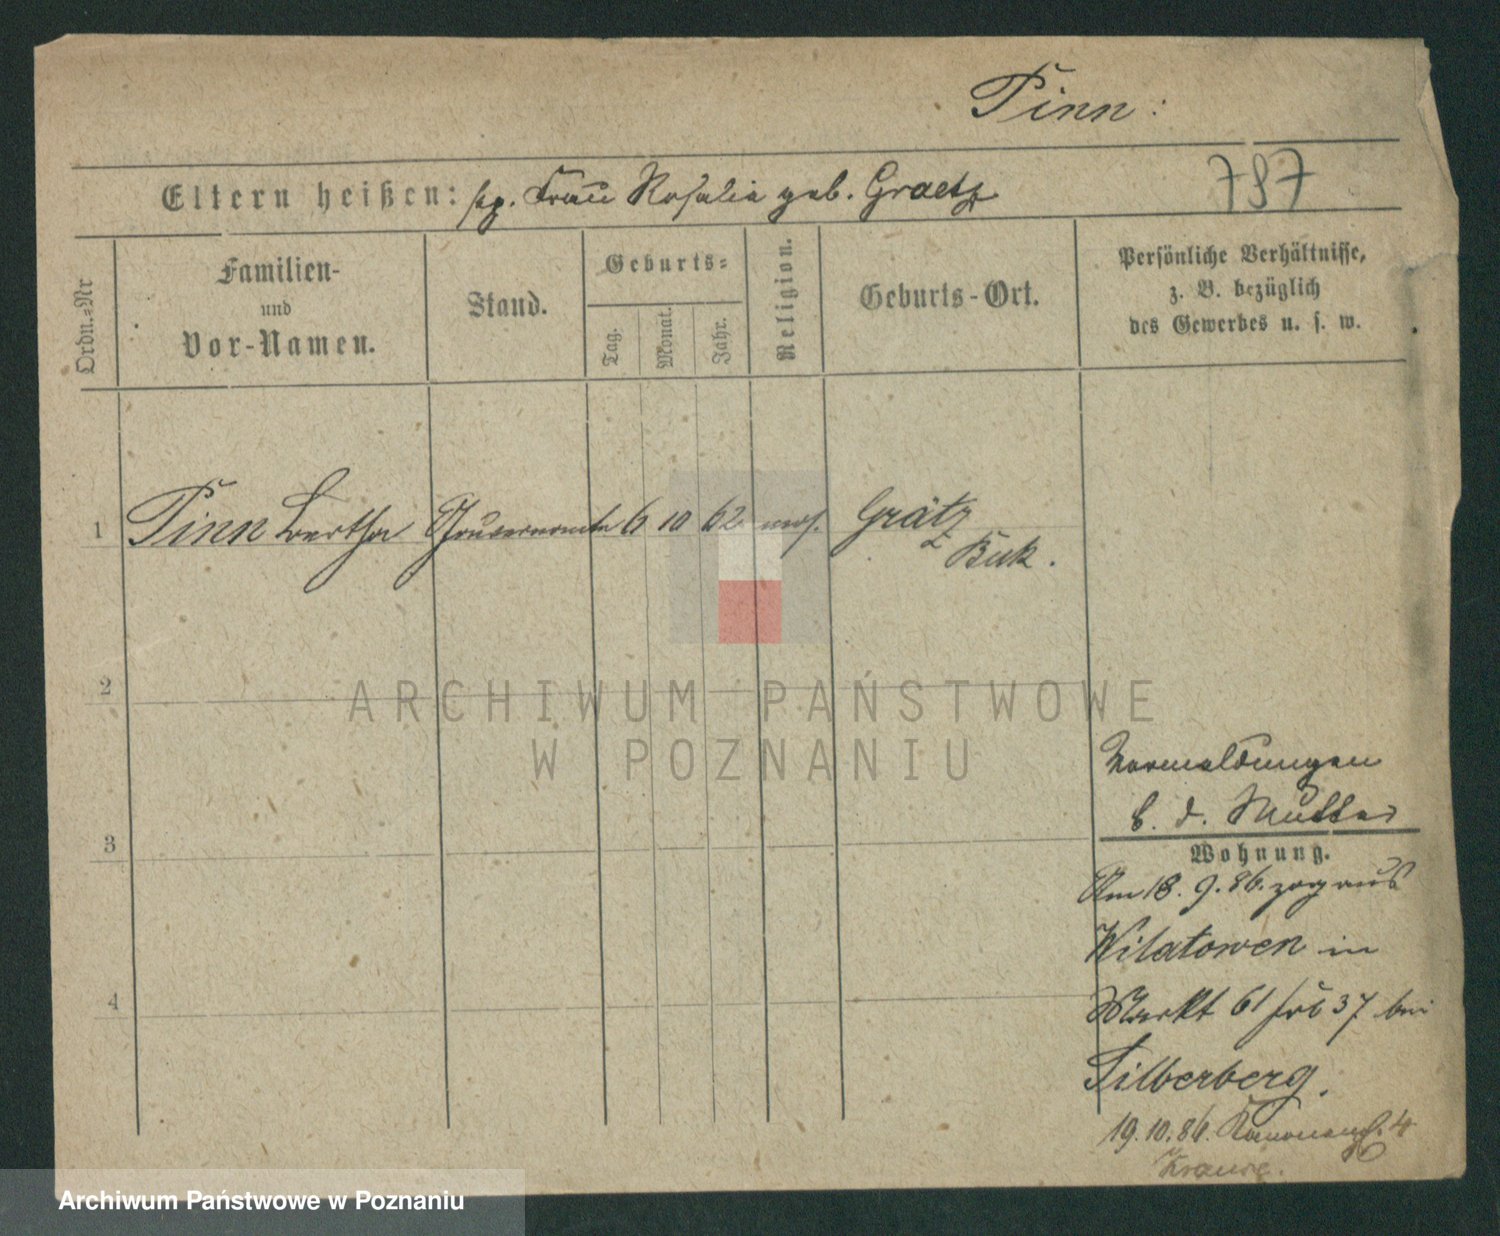 Pinn:
787
Eltern heißen: sep. Frau Rosalie geb. Graetz
Ordn.=Nr
Familien-
und
Vor-Namen.
Stand.
Geburts=
Tag.
Monat.
Jahr.
Religion.
Geburts-Ort.
Persönliche Verhältnisse,
z. B. bezüglich
des Gewerbes u. s. w.
1 Pinn Bertha Gouvernante 6 10 62 mos. Grätz
Buk.
2
3
4
Vormeldungen
b. d. Mutter
Wohnung.
Am 18. 9. 86. zog aus
Wilatowen in
Markt 61 frb 37 bei
Silberberg.
19. 10. 86. Kanonenpl. 4
Krause.
ARCHIWUM PAŃSTWOWE
W POZNANIU
Archiwum Państwowe w Poznaniu